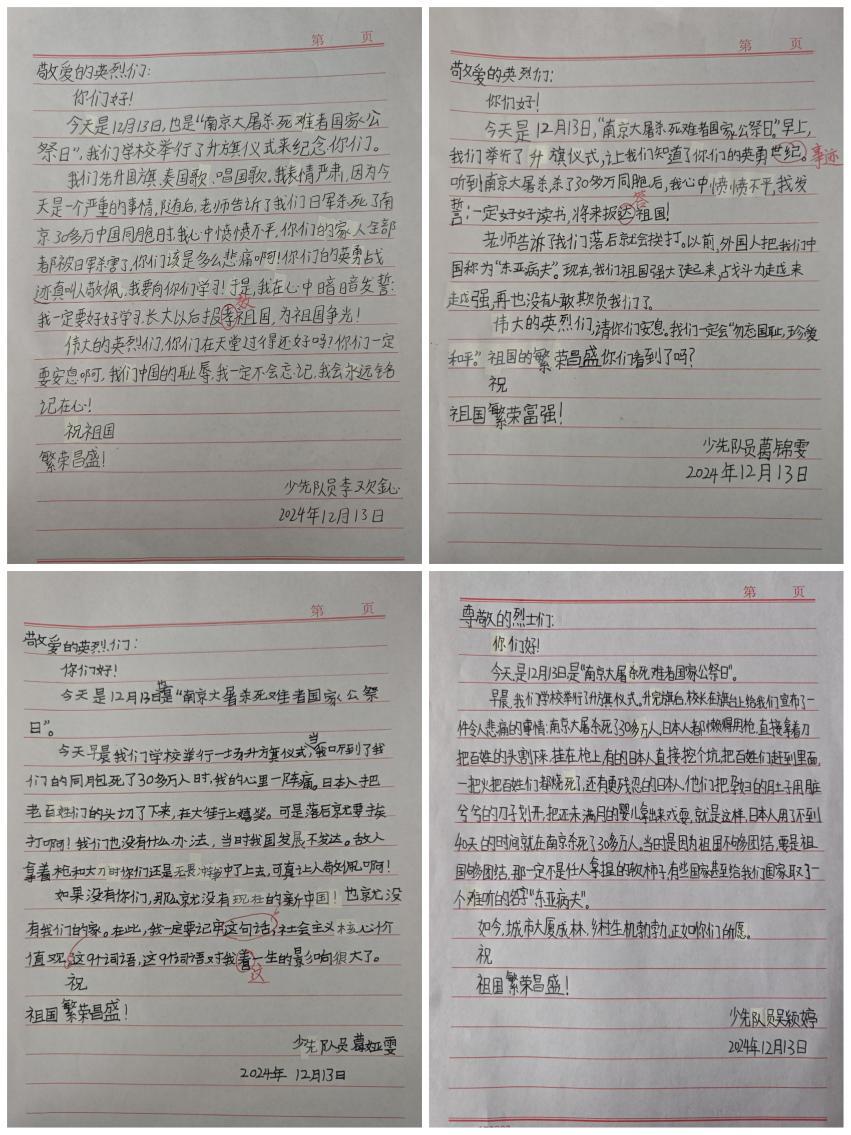 第 页
敬爱的英烈们：
你们好！
今天是12月13日，也是“南京大屠杀死难者国家公
祭日”，我们学校举行了升旗仪式来纪念你们。
我们先升国旗、奏国歌、唱国歌。我表情严肃，因为今
天是一个严重的事情，随后，老师告诉了我们日军杀死了南
京30多万中国同胞时，我心中愤愤不平，你们的家人全部
都被日军杀害了，你们该是多么悲痛啊！你们的英勇战
迹真叫人敬佩，我要向你们学习！于是，我在心中暗暗发誓：
我一定要好好学习，长大以后报孝祖国，为祖国争光！
效
伟大的英烈们，你们在天堂过得还好吗？你们一定
要安息啊，我们中国的耻辱，我一定不会忘记，我会永远铭
记在心！
祝祖国
繁荣昌盛！
少先队员李又欢
2024年12月13日
第 页
敬爱的英烈们：
你们好！
今天是12月13日，“南京大屠杀死难者国家公祭日”。早上，
我们举行了升旗仪式，让我们知道了你们的英勇世纪。
事迹
听到南京大屠杀，杀了30多万同胞后，我心中愤愤不平，我发
誓：一定好好读书，将来报达祖国！
答
老师告诉了我们落后就会挨打。以前，外国人把我们中
国称为“东亚病夫”。现在，我们祖国强大了起来，战斗力走越来
越强，再也没有人敢欺负我们了。
伟大的英烈们，请你们安息。我们一定会“勿忘国耻，珍爱
和平。”祖国的繁荣昌盛你们看到了吗？
祝
祖国繁荣富强！
少先队员葛锦雯
2024年12月13日
第 页
敬爱的英烈们：
你们好！
今天是12月13日是“南京大屠杀死难者国家公祭
日”。
今天早晨我们学校举行一场升方旗仪式，我听到了我
当
们的同胞死了30多万人时，我的心里一阵痛。日本人把
老百姓们的头切了下来，在大街上嬉笑。可是落后就要挨
打啊！我们也没有什么办法，当时我国发展不发达。敌人
拿着枪和大刀时你们还是无畏冲锋冲了上去，可真让人敬佩啊！
如果没有你们，那么就没有现在的新中国！也就没
有我们的家。在此，我一定要记牢这句话，社会主义核心价
值观，这9个词语，这9个词语对我着一生的影响很大了。
这
祝
祖国繁荣昌盛！
少先队员葛娅雯
2024年12月13日
第 页
尊敬的烈士们：
你们好！
今天是12月13日是“南京大屠杀死难者国家公祭日”。
早晨，我们学校举行了升旗仪式。升完旗后，校长在旗台上给我们宣布了一
件令人悲痛的事情：南京大屠杀死了30多万人，日本人都懒得用枪，直接拿着刀
把百姓的头割下来，挂在枪上，有的日本人直接挖个坑，把百姓们赶到里面，
一把火把百姓们都烧死了，还有更残忍的日本人，他们把孕妇的肚子用脏
兮兮的刀子划开，把还未满月的婴儿拿出来戏耍，就是这样，日本人用了不到
40天的时间就在南京杀死了30多万人。当时是因为祖国不够团结，要是祖
国够团结，那一定不是任人拿捏的软柿子，有些国家甚至给我们国家取了一
个难听的名字“东亚病夫”。
如今，城市大厦成林，乡村生机勃勃，正如你们的愿。
祝
祖国繁荣昌盛！
少先队员吴颖婷
2024年12月13日